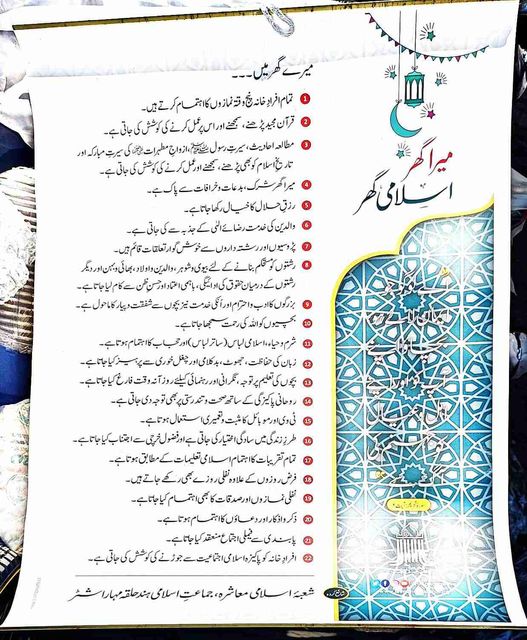 میرا گھر
اسلامی گھر
میرے گھر میں۔۔۔
1 تمام افرادِ خانہ پنج وقتہ نمازوں کا اہتمام کرتے ہیں۔
2 قرآن مجید پڑھنے، سمجھنے اور اس پر عمل کرنے کی کوشش کی جاتی ہے۔
3 مطالعہ احادیث، سیرتِ رسول ﷺ، ازواجِ مطہراتؓ کی سیرتِ مبارکہ اور
تاریخِ اسلام کو بھی پڑھنے، سمجھنے اور عمل کرنے کی کوشش کی جاتی ہے۔
4 میرا گھر شرک، بدعات و خرافات سے پاک ہے۔
5 رزقِ حلال کا خیال رکھا جاتا ہے۔
6 والدین کی خدمت رضائے الٰہی کے جذبہ سے کی جاتی ہے۔
7 پڑوسیوں اور رشتہ داروں سے خوش گوار تعلقات قائم ہیں۔
8 رشتوں کو مستحکم بنانے کے لئے بیوی و شوہر، والدین و اولاد، بھائی و بہن اور دیگر
رشتوں کے درمیان حقوق کی ادائیگی، باہمی اعتماد اور حسنِ ظن سے کام لیا جاتا ہے۔
9 بزرگوں کا ادب و احترام اور اُنکی خدمت نیز بچوں سے شفقت و پیار کا ماحول ہے۔
10 بچیوں کو اللہ کی رحمت سمجھا جاتا ہے۔
11 شرم و حیاء، اسلامی لباس (ساتر لباس) اور حجاب کا اہتمام ہوتا ہے۔
12 زبان کی حفاظت، جھوٹ، بدکلامی اور چغل خوری سے پرہیز کیا جاتا ہے۔
13 بچوں کی تعلیم پر توجہ، نگرانی اور رہنمائی کیلئے روز آنہ وقت فارغ کیا جاتا ہے۔
14 روحانی پاکیزگی کے ساتھ صحت و تندرستی پر بھی توجہ دی جاتی ہے۔
15 ٹی وی اور موبائل کا مثبت و تعمیری استعمال ہوتا ہے۔
16 طرزِ زندگی میں سادگی اختیار کی جاتی ہے اور فضول خرچی سے اجتناب کیا جاتا ہے۔
17 تمام تقریبات کا اہتمام اسلامی تعلیمات کے مطابق ہوتا ہے۔
18 فرض روزوں کے علاوہ نفلی روزے بھی رکھے جاتے ہیں۔
19 نفلی نمازوں اور صدقات کا بھی اہتمام کیا جاتا ہے۔
20 ذکر و اذکار اور دعاؤں کا اہتمام ہوتا ہے۔
21 پابندی سے فیملی اجتماع منعقد کیا جاتا ہے۔
22 افرادِ خانہ کو پاکیزہ اسلامی اجتماعیت سے جوڑنے کی کوشش کی جاتی ہے۔
شعبۂ اسلامی معاشرہ، جماعتِ اسلامی ہند حلقہ مہاراشٹر